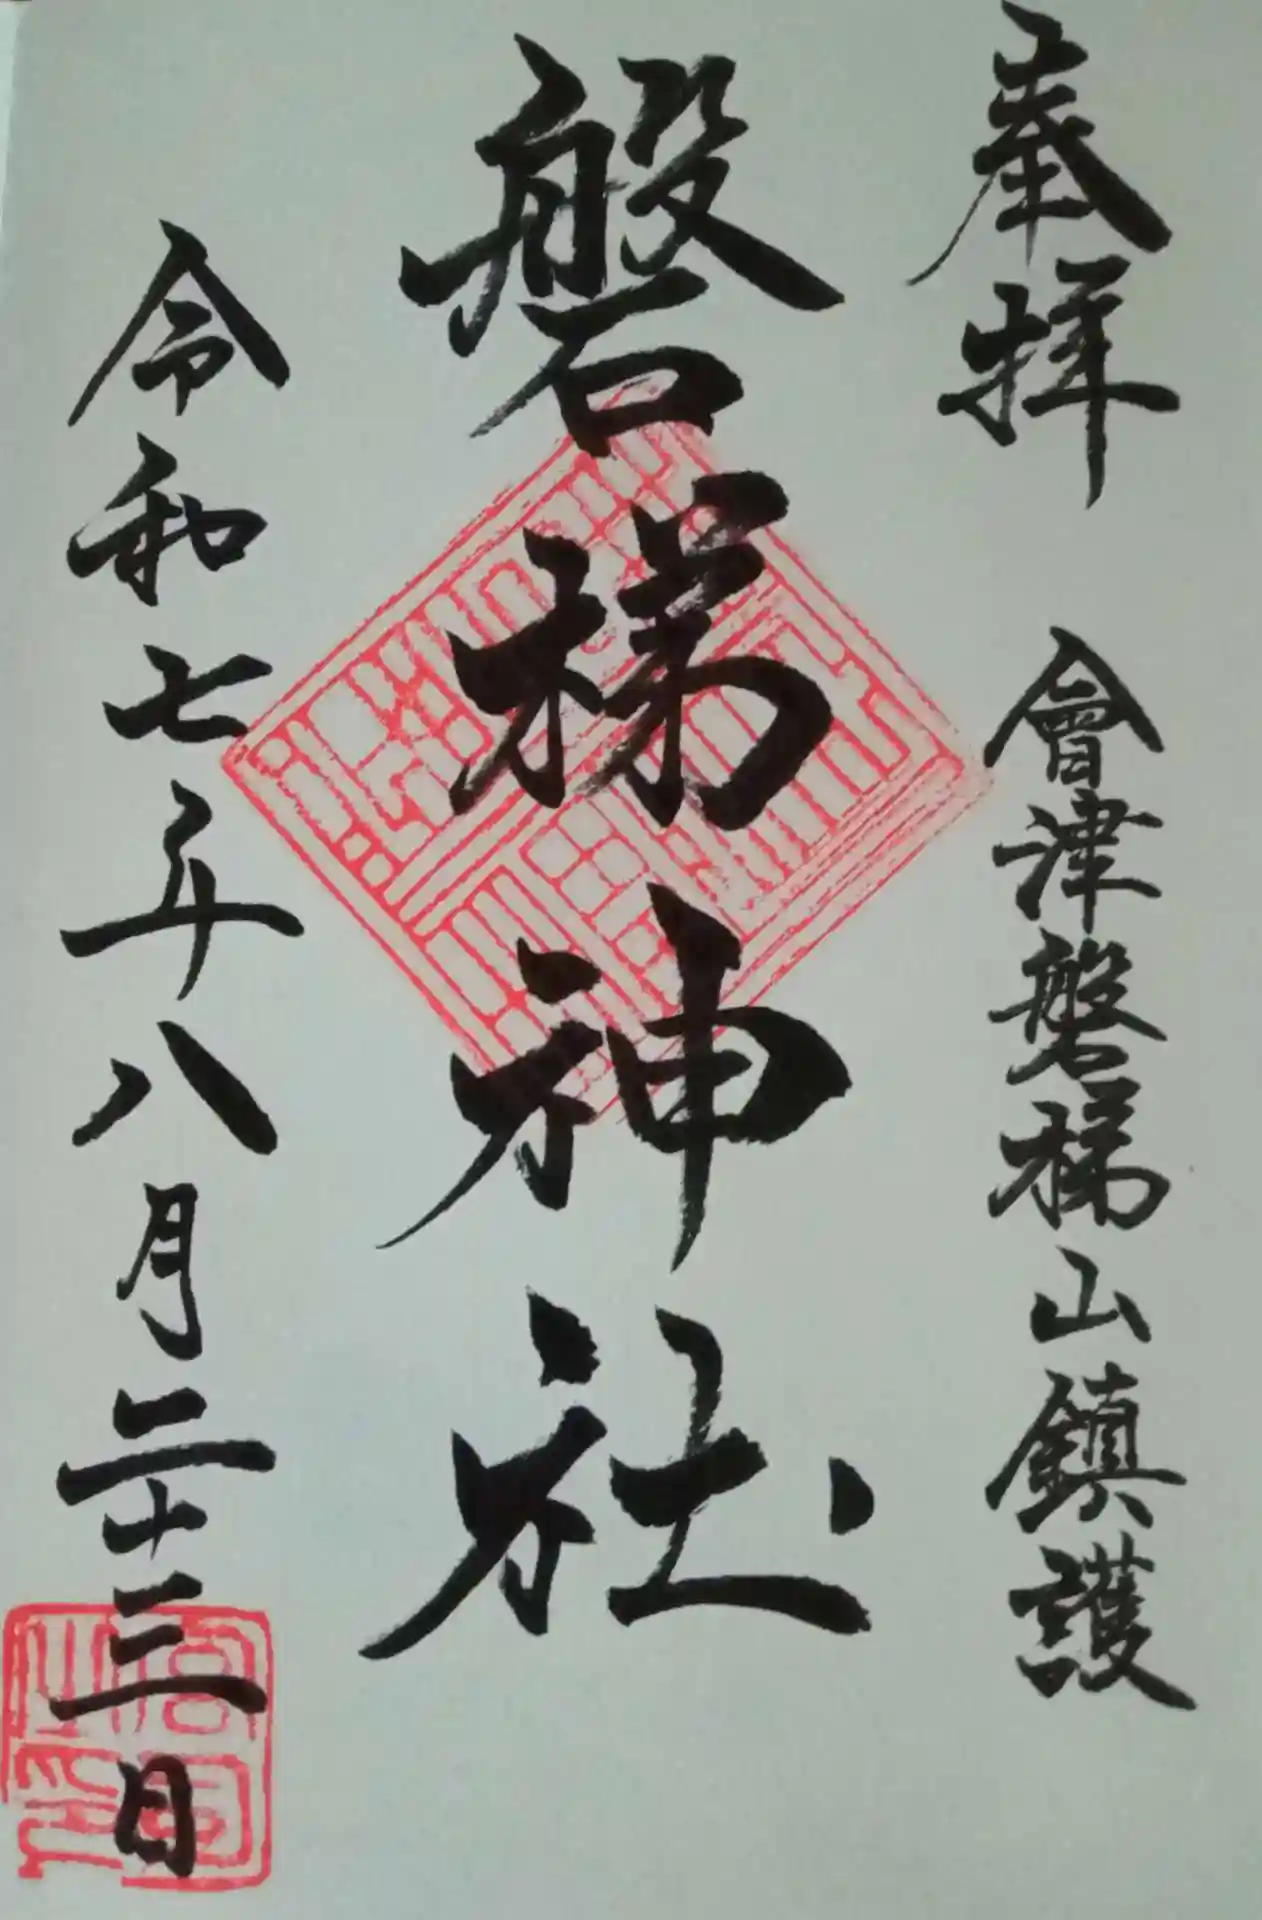 奉拝 會津磐梯山鎮護
磐梯神社
令和七年八月二十三日
宮司之印